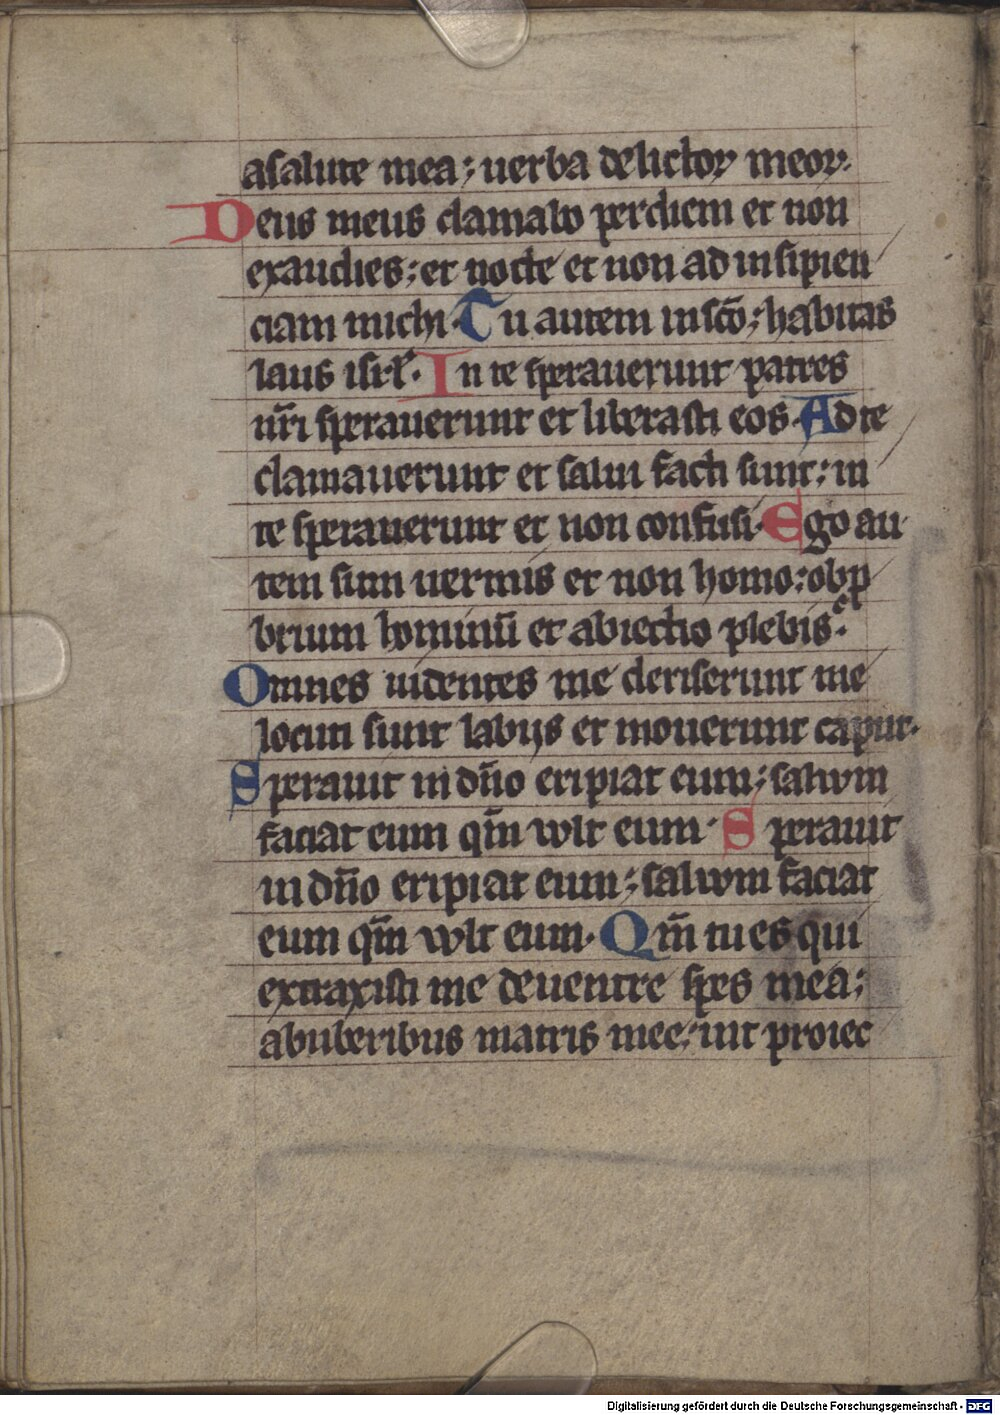 asalute mea; uerba delictoꝝ meoꝝ.
Deus meus clamabo perdiem et non
exaudies; et nocte et non ad insipien
ciam michi. Tu autem insc̄o; habitas
laus isrl̄. In te sperauerunt patres
nr̄i sperauerunt et liberasti eos. Ad te
clamauerunt et salui facti sunt; in
te sperauerunt et non confusi. Ego au
tem sum uermis et non homo; obp
brium hominū et abiectio plebis.
Omnes uidentes me deriserunt me
locuti sunt labijs et mouerunt caput.
Sperauit in dn̄o eripiat eum; saluum
faciat eum qm̄ wlt eum. Sperauit
in dn̄o eripiat eum; saluum faciat
eum qm̄ wlt eum. Qm̄ tu es qui
extraxisti me deuentre spes mea;
abuberibus matris mee; int proiec
Digitalisierung gefördert durch die Deutsche Forschungsgemeinschaft - DFG